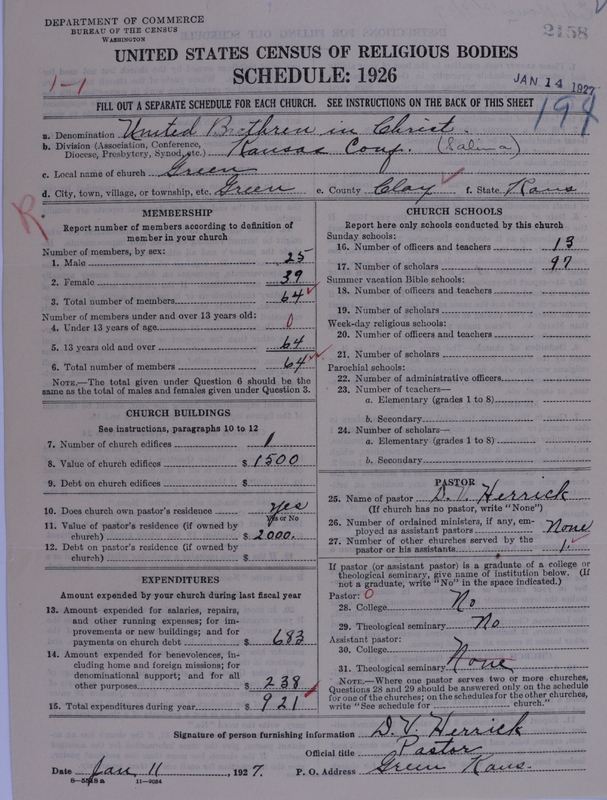 DEPARTMENT OF COMMERCE
BUREAU OF THE CENSUS
WASHINGTON
2158
UNITED STATES CENSUS OF RELIGIOUS BODIES
SCHEDULE: 1926
1-1
JAN 14 1927
FILL OUT A SEPARATE SCHEDULE FOR EACH CHURCH. SEE INSTRUCTIONS ON THE BACK OF THIS SHEET
194
a. Denomination United Brethren in Christ.
b. Division (Association, Conference, Diocese, Presbytery, Synod, etc.) Kansas Conf. (Salina)
c. Local name of church Green
d. City, town, village, or township, etc. Green e. County Clay f. State Kans
R
MEMBERSHIP
Report number of members according to definition of member in your church
Number of members, by sex:
1. Male 25
2. Female 39
3. Total number of members 64
Number of members under and over 13 years old:
4. Under 13 years of age 0
5. 13 years old and over 64
6. Total number of members 64
NOTE.—The total given under Question 6 should be the same as the total of males and females given under Question 3.
CHURCH BUILDINGS
See instructions, paragraphs 10 to 12
7. Number of church edifices 1
8. Value of church edifices $ 1500
9. Debt on church edifices $
10. Does church own pastor's residence Yes
Yes or No
11. Value of pastor's residence (if owned by church) $ 2000.
12. Debt on pastor's residence (if owned by church) $
EXPENDITURES
Amount expended by your church during last fiscal year
13. Amount expended for salaries, repairs, and other running expenses; for improvements or new buildings; and for payments on church debt $ 683
14. Amount expended for benevolences, including home and foreign missions; for denominational support; and for all other purposes $ 238
15. Total expenditures during year $ 921
CHURCH SCHOOLS
Report here only schools conducted by this church
Sunday schools:
16. Number of officers and teachers 13
17. Number of scholars 97
Summer vacation Bible schools:
18. Number of officers and teachers
19. Number of scholars
Week-day religious schools:
20. Number of officers and teachers
21. Number of scholars
Parochial schools:
22. Number of administrative officers
23. Number of teachers—
a. Elementary (grades 1 to 8)
b. Secondary
24. Number of scholars—
a. Elementary (grades 1 to 8)
b. Secondary
PASTOR
25. Name of pastor D. V. Herrick
(If church has no pastor, write "None")
26. Number of ordained ministers, if any, employed as assistant pastors None
27. Number of other churches served by the pastor or his assistants 1.
If pastor (or assistant pastor) is a graduate of a college or theological seminary, give name of institution below. (If not a graduate, write "No" in the space indicated.)
Pastor: 0
28. College No
29. Theological seminary No
Assistant pastor:
30. College
31. Theological seminary None
NOTE.—Where one pastor serves two or more churches, Questions 28 and 29 should be answered only on the schedule for one of the churches; on the schedules for the other churches, write "See schedule for church."
Signature of person furnishing information D. V. Herrick
Official title Pastor
Date Jan 11, 1927. P. O. Address Green Kans.
11—9034